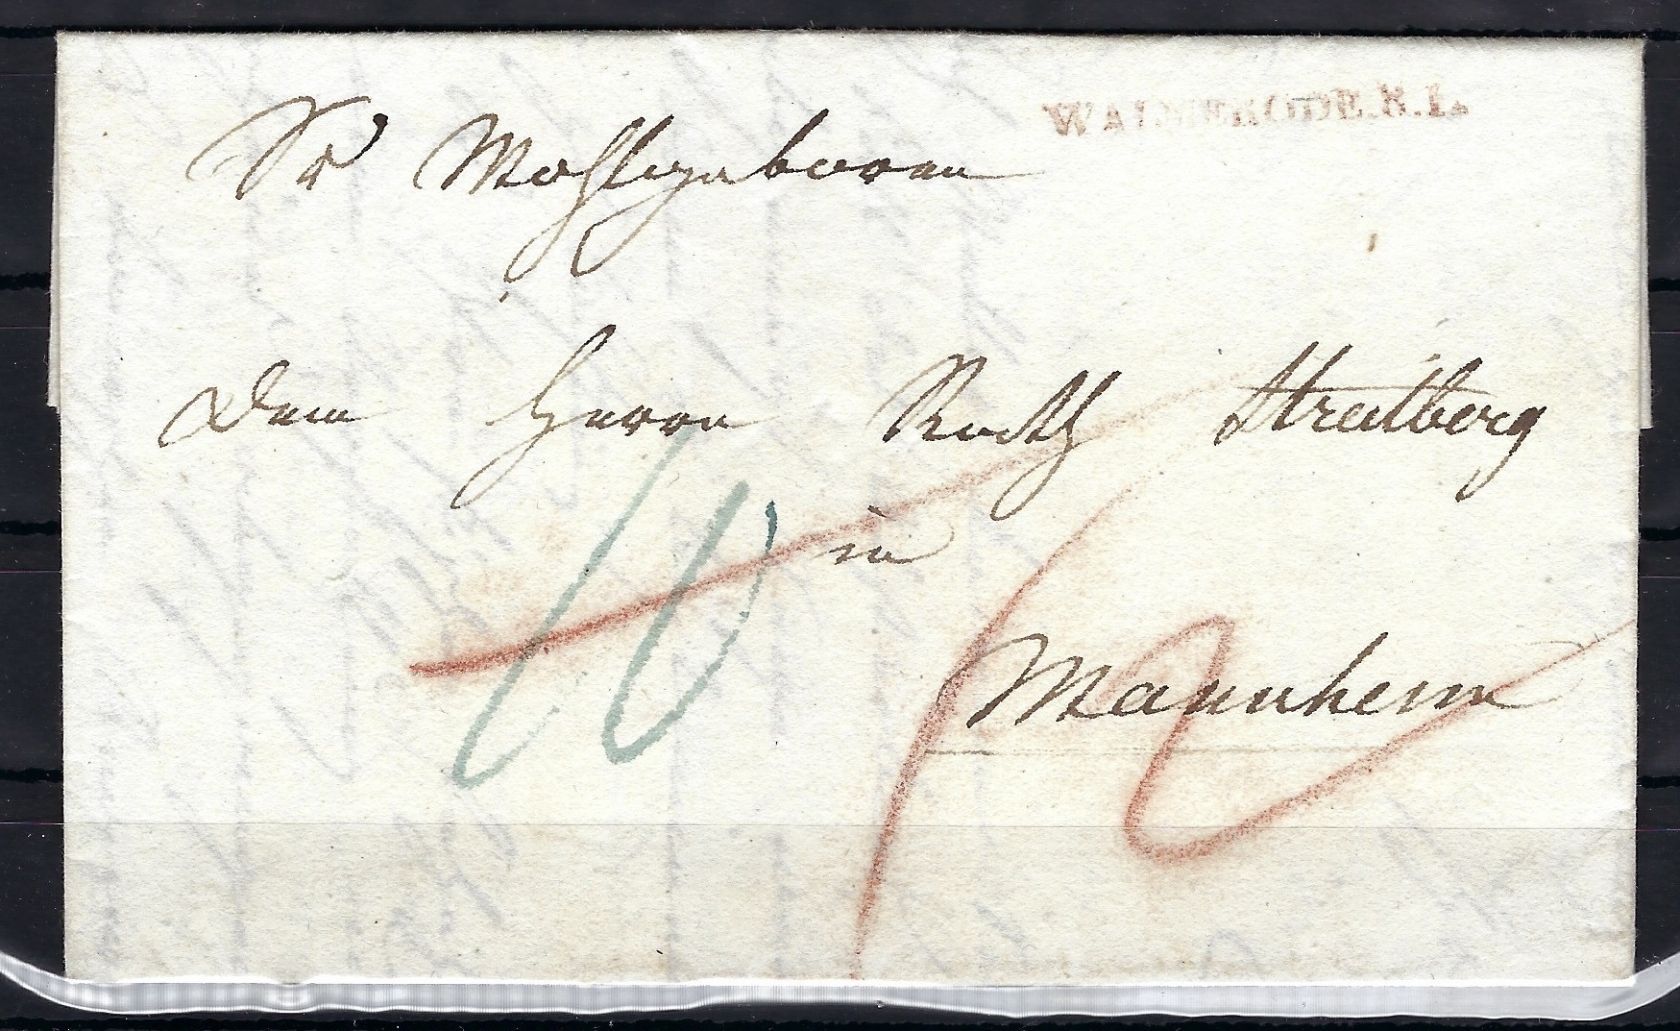 WALMERODE.R.I.
Sr Wohlgeboren
Dem Herrn Rath Streitberg
in
Mannheim
10
12